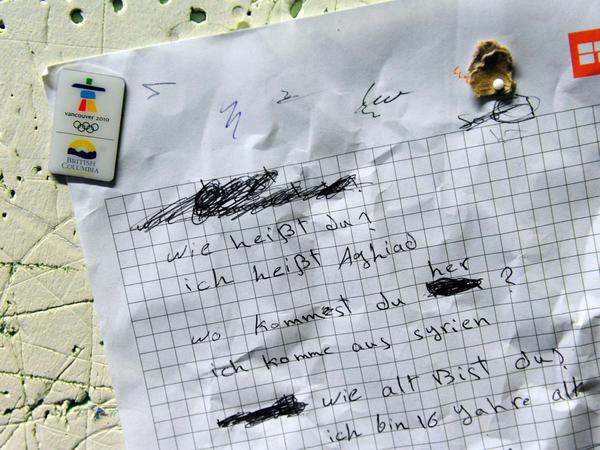 vancouver 2010
BRITISH
COLUMBIA
wie heißt du?
ich heißt Aghiad
wo kommest du her ?
ich komme aus syrien
wie alt Bist du?
ich bin 16 yahre alt